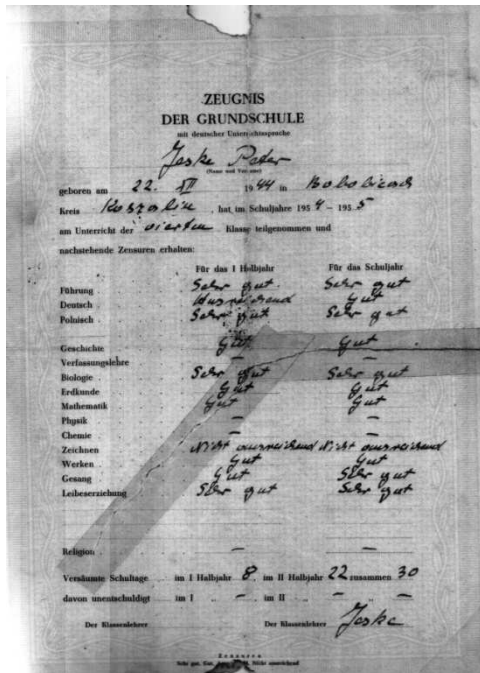 ZEUGNIS
DER GRUNDSCHULE
mit deutscher Unterrichtssprache
Jeske Peter
(Name und Vorname)
geboren am 22. XII 1944 in
Kreis Koszalin, hat im Schuljahre 1954 – 1955
am Unterricht der vierten Klasse teilgenommen und
nachstehende Zensuren erhalten:
Für das I Halbjahr Für das Schuljahr
Führung Sehr gut Sehr gut
Deutsch Ausreichend Gut
Polnisch Sehr gut Sehr gut
Geschichte Gut Gut
Verfassungslehre – –
Biologie Sehr gut Sehr gut
Erdkunde Gut Gut
Mathematik Gut Gut
Physik – –
Chemie – –
Zeichnen Nicht ausreichend Nicht ausreichend
Werken Gut Gut
Gesang Gut Sehr gut
Leibeserziehung Sehr gut Sehr gut
Religion – –
Versäumte Schultage im I Halbjahr 8, im II Halbjahr 22 zusammen 30
davon unentschuldigt im I „ – im II „ – „ –
Der Klassenlehrer Der Klassenlehrer Jeske
Zensuren
Sehr gut, Gut, Nicht ausreichend